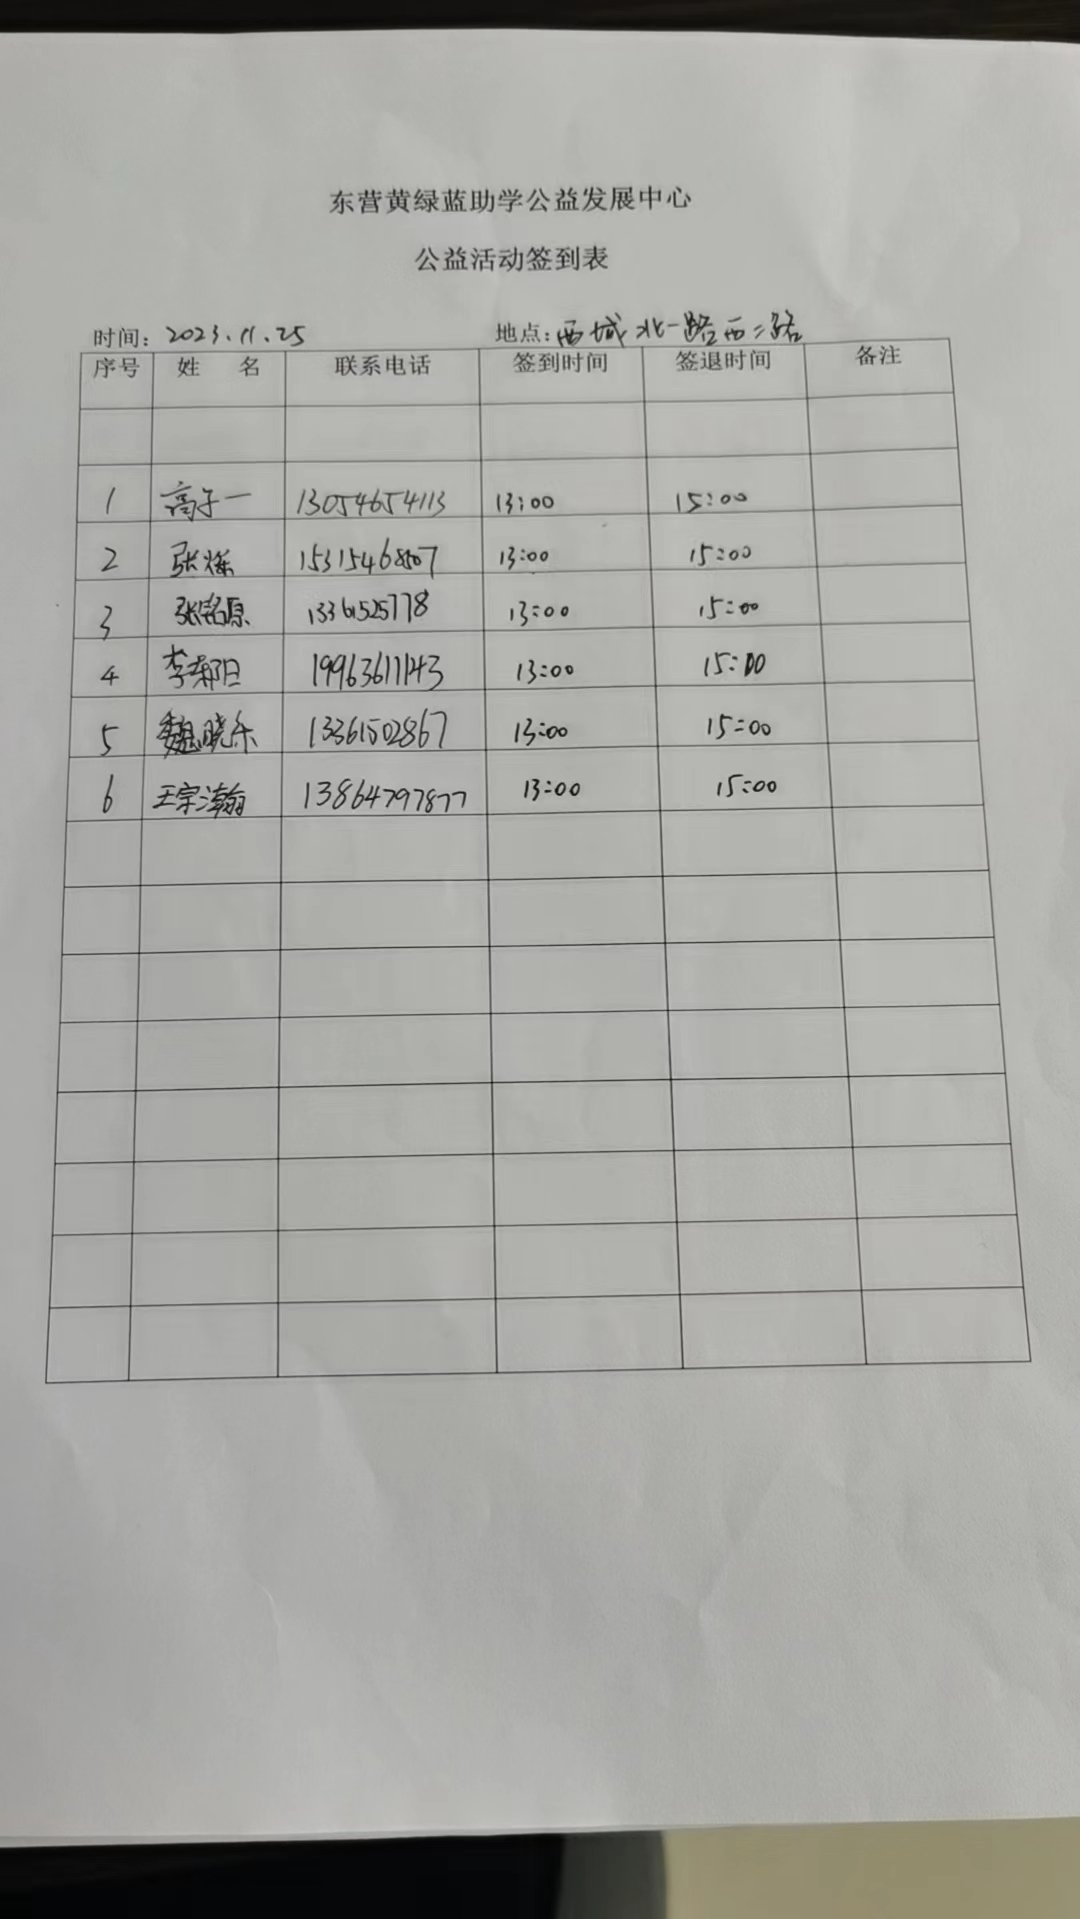 东营黄绿蓝助学公益发展中心
公益活动签到表
时间: 2023.11.25 地点: 西城北一路西二路
序号 姓 名 联系电话 签到时间 签退时间 备注
1 高子一 13054654113 13:00 15:00
2 张烁 15315468507 13:00 15:00
3 张铭原 13361525778 13:00 15:00
4 13:00 15:00
5 魏晓乐 13361502867 13:00 15:00
6 王宗瀚 13864797877 13:00 15:00